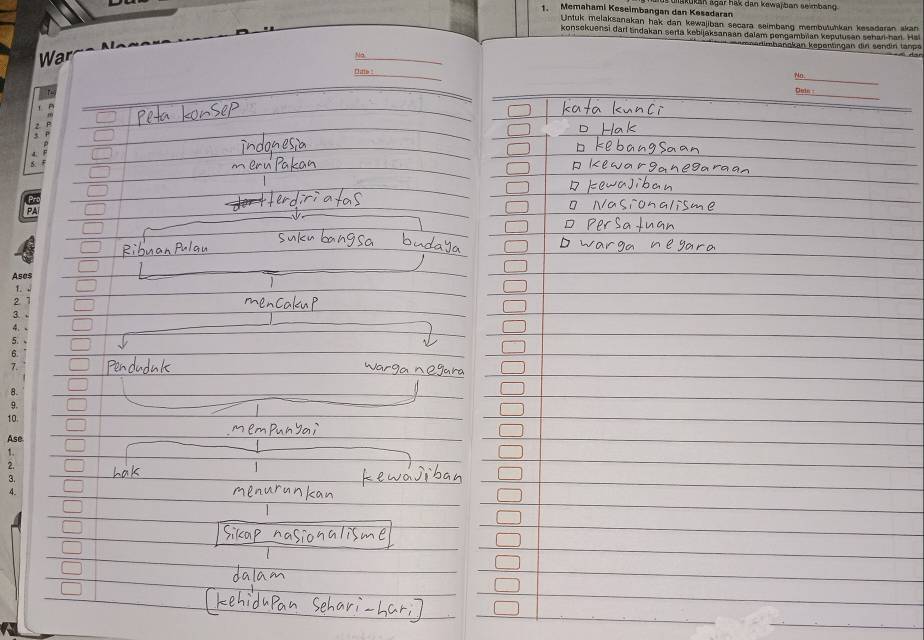 1. Memahami Keseimbangan dan Kesadaran
Untuk melaksanakan hak dan kewajiban secara seimbang membutuhkan kesadaran akan
konsekuensi dari tindakan serta kebijaksanaan dalam pengambilan keputusan sehari-hari. Hal
No.
Date :
Peta konsep
indonesia
merupakan
terdiri atas
Ribuan Pulau suku bangsa budaya
mencakup
Penduduk warga negara
mempunyai
hak kewajiban
menurunkan
Sikap nasionalisme
dalam
[kehidupan sehari-hari]
No.
Date :
kata kunci
Hak
kebangsaan
kewarganegaraan
kewajiban
Nasionalisme
Persatuan
warga negara
War
Ases
1.
2.
3.
4.
5.
6.
7.
8.
9.
10.
Ase
1.
2.
3.
4.